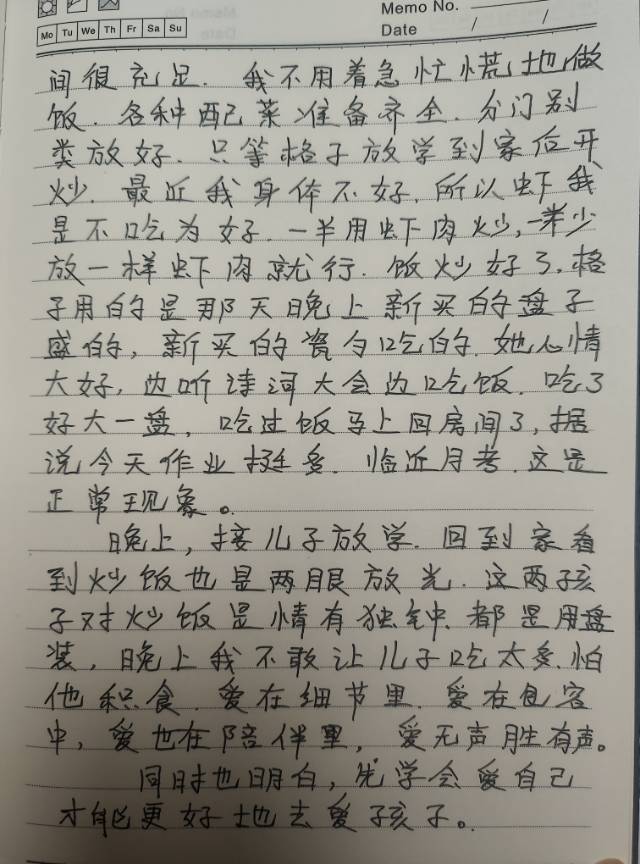 Memo No.
Mo Tu We Th Fr Sa Su
Date / /
间很充足. 我不用着急忙慌地做
饭. 各种配菜准备齐全. 分门别
类放好. 只等格子放学到家后开
炒. 最近我身体不好. 所以虾我
是不吃为好. 一半用虾肉炒, 一半少
放一样虾肉就行. 饭炒好了. 格
子用的是那天晚上新买的盘子
盛的, 新买的瓷勺吃的. 她心情
大好, 边听诗词大会边吃饭. 吃了
好大一盘, 吃过饭马上回房间了, 据
说今天作业挺多. 临近月考. 这是
正常现象。
晚上, 接儿子放学. 回到家看
到炒饭也是两眼放光. 这两孩
子对炒饭是情有独钟. 都是用盘
装, 晚上我不敢让儿子吃太多. 怕
他积食. 爱在细节里. 爱在包容
中, 爱也在陪伴里, 爱无声胜有声。
同时也明白, 先学会爱自己
才能更好地去爱孩子。